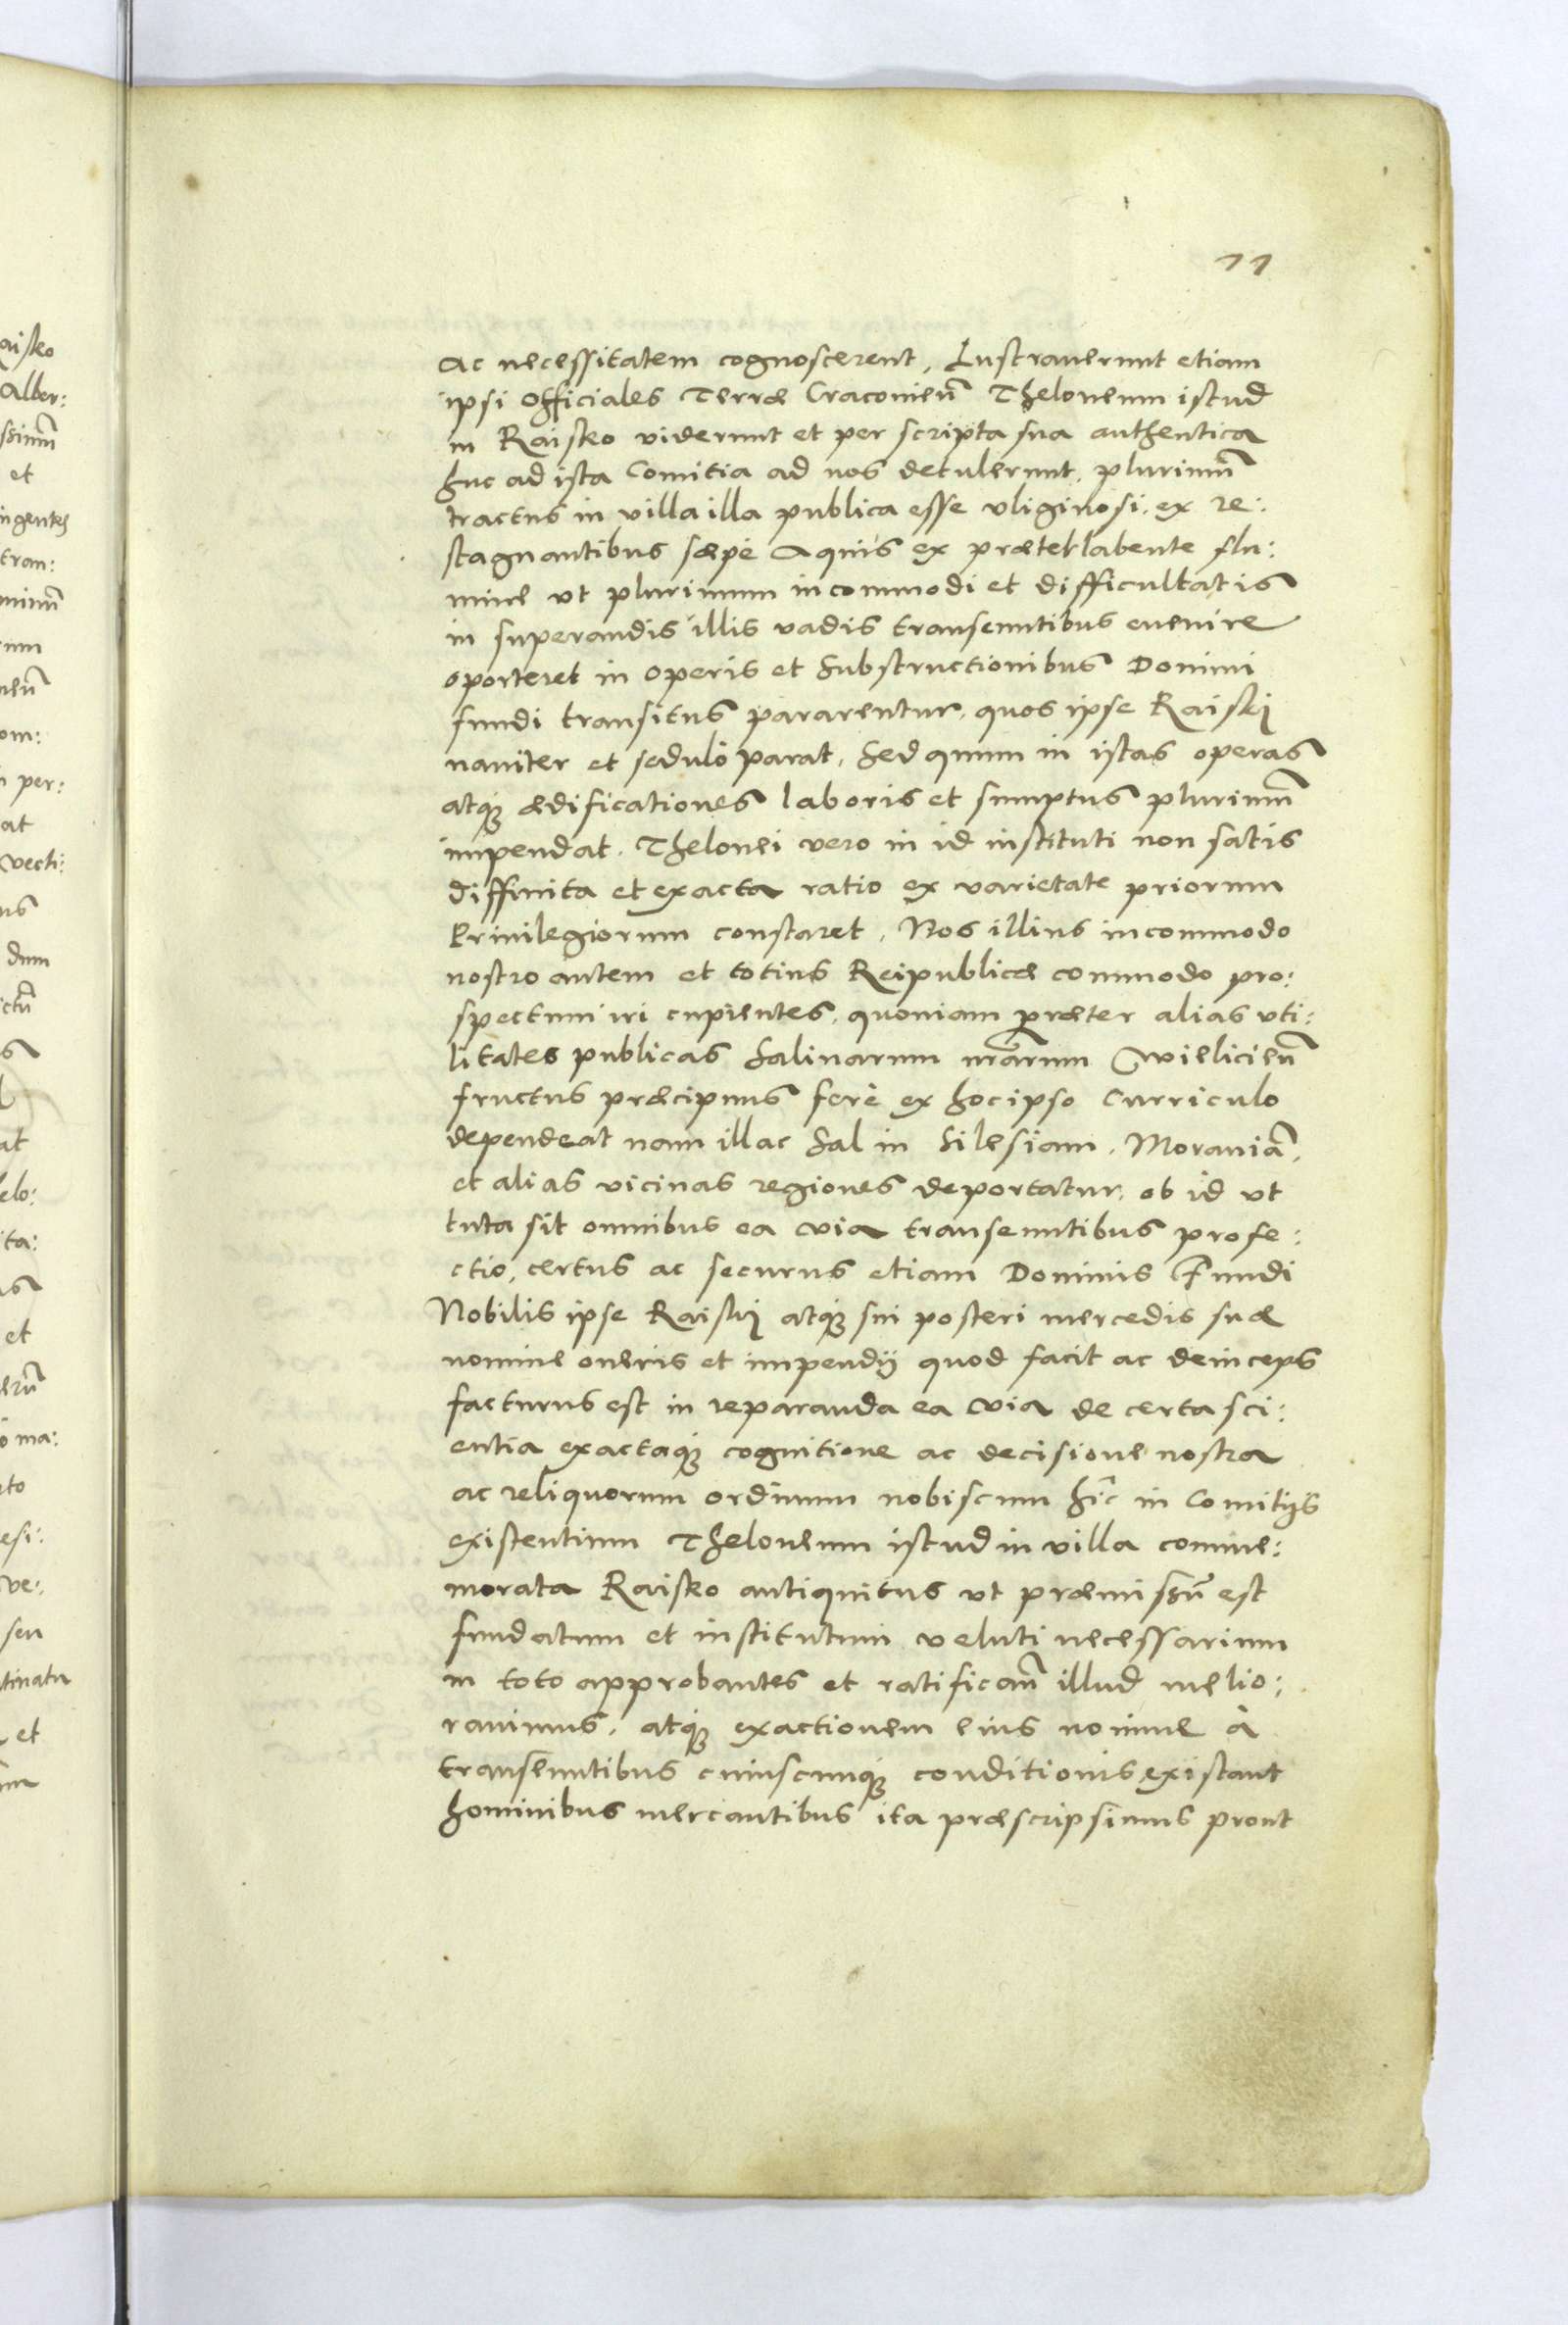 11
ac necessitatem cognoscerent, Lustraverunt etiam
ipsi officiales Terræ Cracovieñ Theloneum istud
in Raisko viderunt et per scripta sua authentica
huc ad ista Comitia ad nos detulerunt, plurimũ
tractus in villa illa publica esse vliginosi, ex re:
stagnantibus sæpè Aquis ex præterlabente flu:
mine vt plurimum incommodi et difficultatis
in superandis illis vadis transeuntibus euenire
oporteret in operis et substructionibus Domini
fundi transitus pararentur, quos ipse Raiskÿ
naviter et sedulò parat, sed quum in istas operas
atq; ædificationes laboris et sumptus plurimũ
impendat, Thelonei vero in id instituti non satis
diffinita et exacta ratio ex varietate priorum
Priuilegiorum constaret, Nos illius incommodo
nostro autem et totius Reipublicæ commodo pro:
spectum iri cupientes, quoniam præter alias vti:
litates publicas Salinarum nr̃arum Wielicieñ
fructus præcipuus ferè ex hoc ipso Curriculo
dependeat nam illac Sal in Silesiam, Morauiã,
et alias vicinas regiones deportatur, ob id vt
tuta sit omnibus ea via transeuntibus profe:
ctio, certus ac securus etiam Dominus Fundi
Nobilis ipse Raiskÿ atq; sui posteri mercedis suæ
nomine oneris et impendij quod facit ac deinceps
facturus est in reparanda ea via de certa sci:
entia exactaq; cognitione ac decisione nostra
ac reliquorum ordinum nobiscum hîc in Comitijs
existentium Theloneum istud in villa comme:
morata Raisko antiquitus vt præmissũ est
fundatum et institutum veluti necessarium
in toto approbantes et ratificañ illud melio:
rauimus, atq; exactionem eius nomine à
transeuntibus cuiuscunq; conditionis existant
hominibus mercantibus ita præscripsimus prout
aisko
Alber:
ssimũ
et
ingentes
tran:
om:
per:
at
vecti:
dum
at
elo:
ita:
et
ma:
esi:
ve:
seu
et